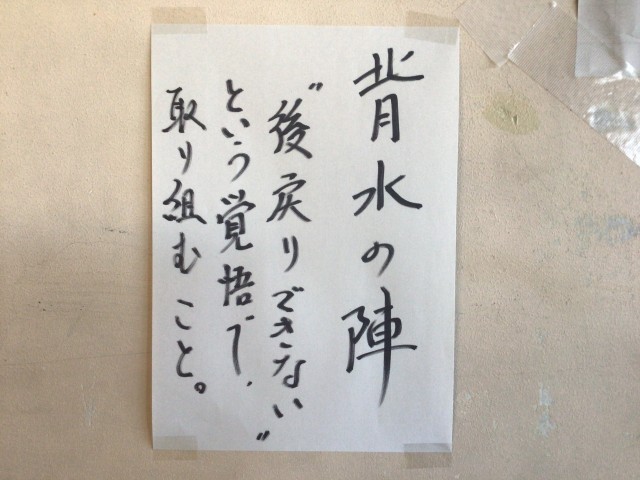 背水の陣
“後戻りできない”
という覚悟で、
取り組むこと。